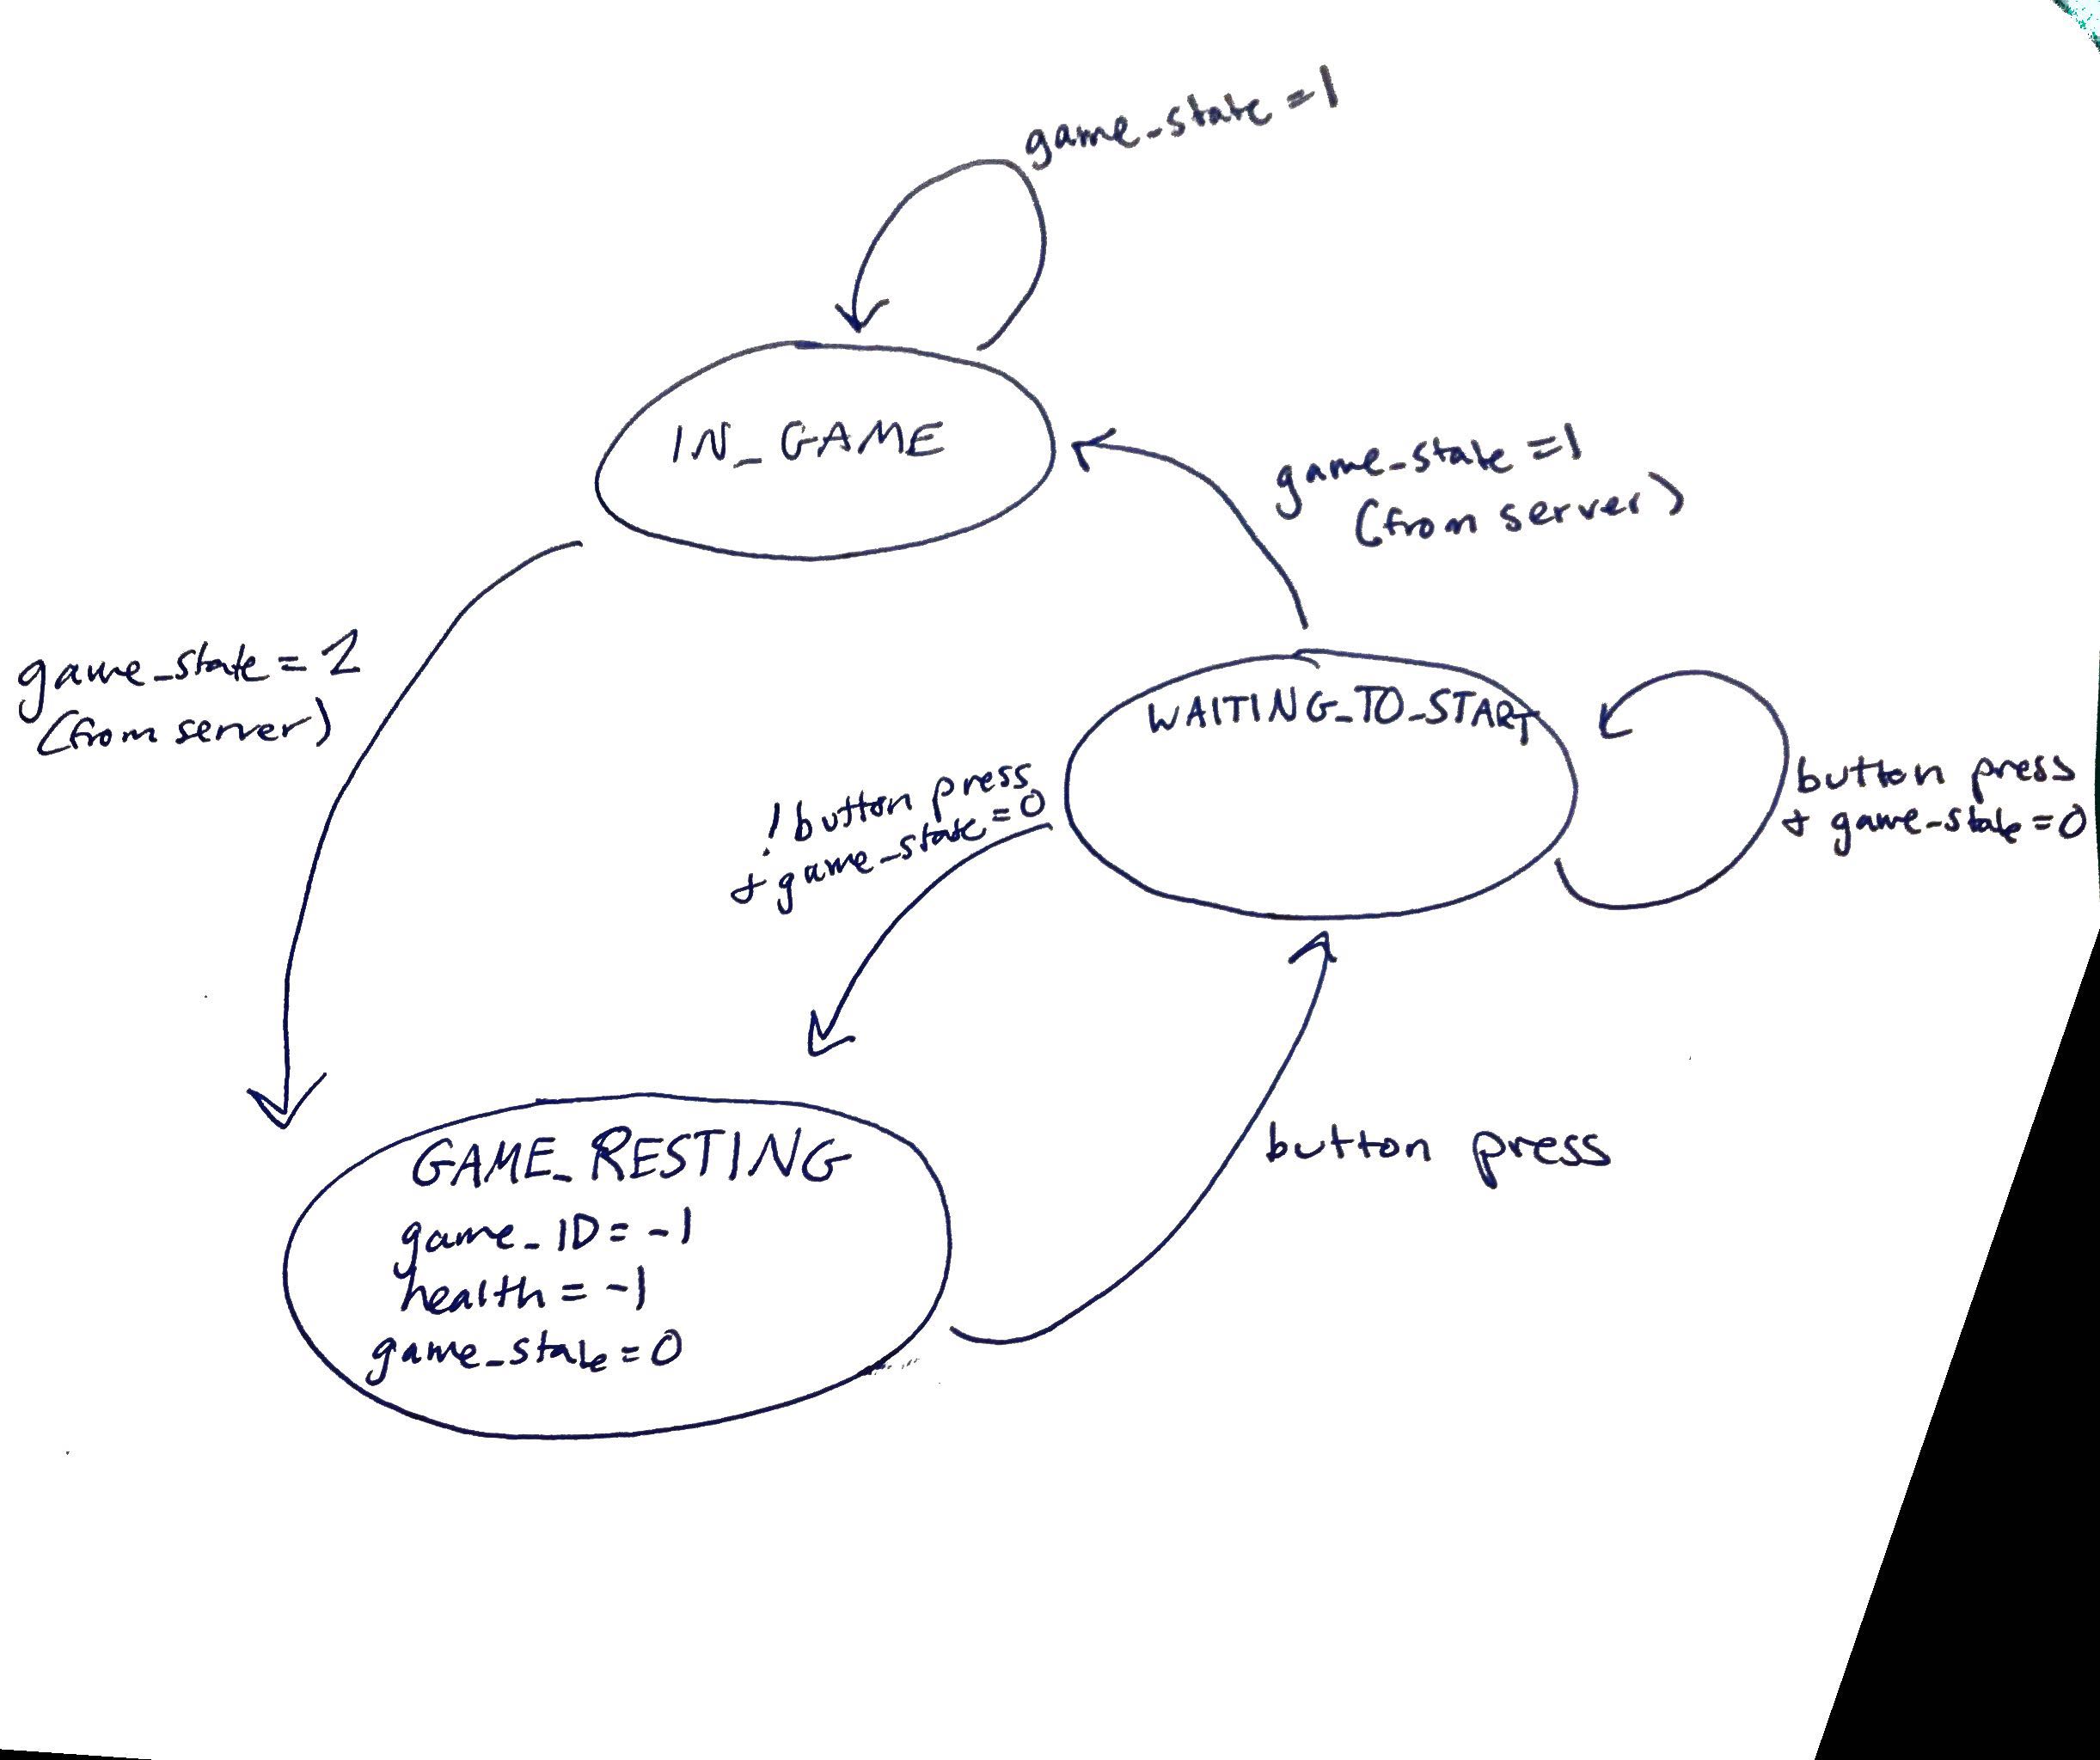 game_state = 1
IN_GAME
game_state = 1
(from server)
game_state = 2
(from server)
WAITING_TO_START
!button press
+ game_state = 0
button press
+ game_state = 0
button press
GAME_RESTING
game_ID = -1
health = -1
game_state = 0